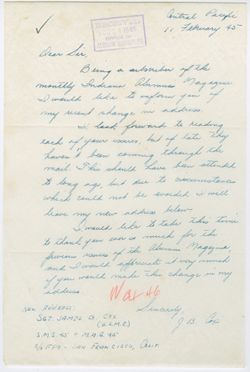 Central Pacific
11 February 45
Dear Sir,
Being a subscriber of the
monthly Indiana Alumnus Magazine
I would like to inform you of
my recent change in address.
I look forward to reading
each of your issues, but of late they
haven't been coming through the
mail. This should have been attended
to long ago, but due to circumstances
which could not be avoided I will
leave my new address below.
I would like to take this time
to thank you very much for the
previous issues of the Alumni Magazine,
and I would appreciate it very much
if you would make this change in my
address.
Mar 46
Sincerely
J.B. Cox
New Address:
Sgt. James B. Cox
S.M.S. 45 - M.A.G. 45
c/o FPO - San Francisco, Calif.